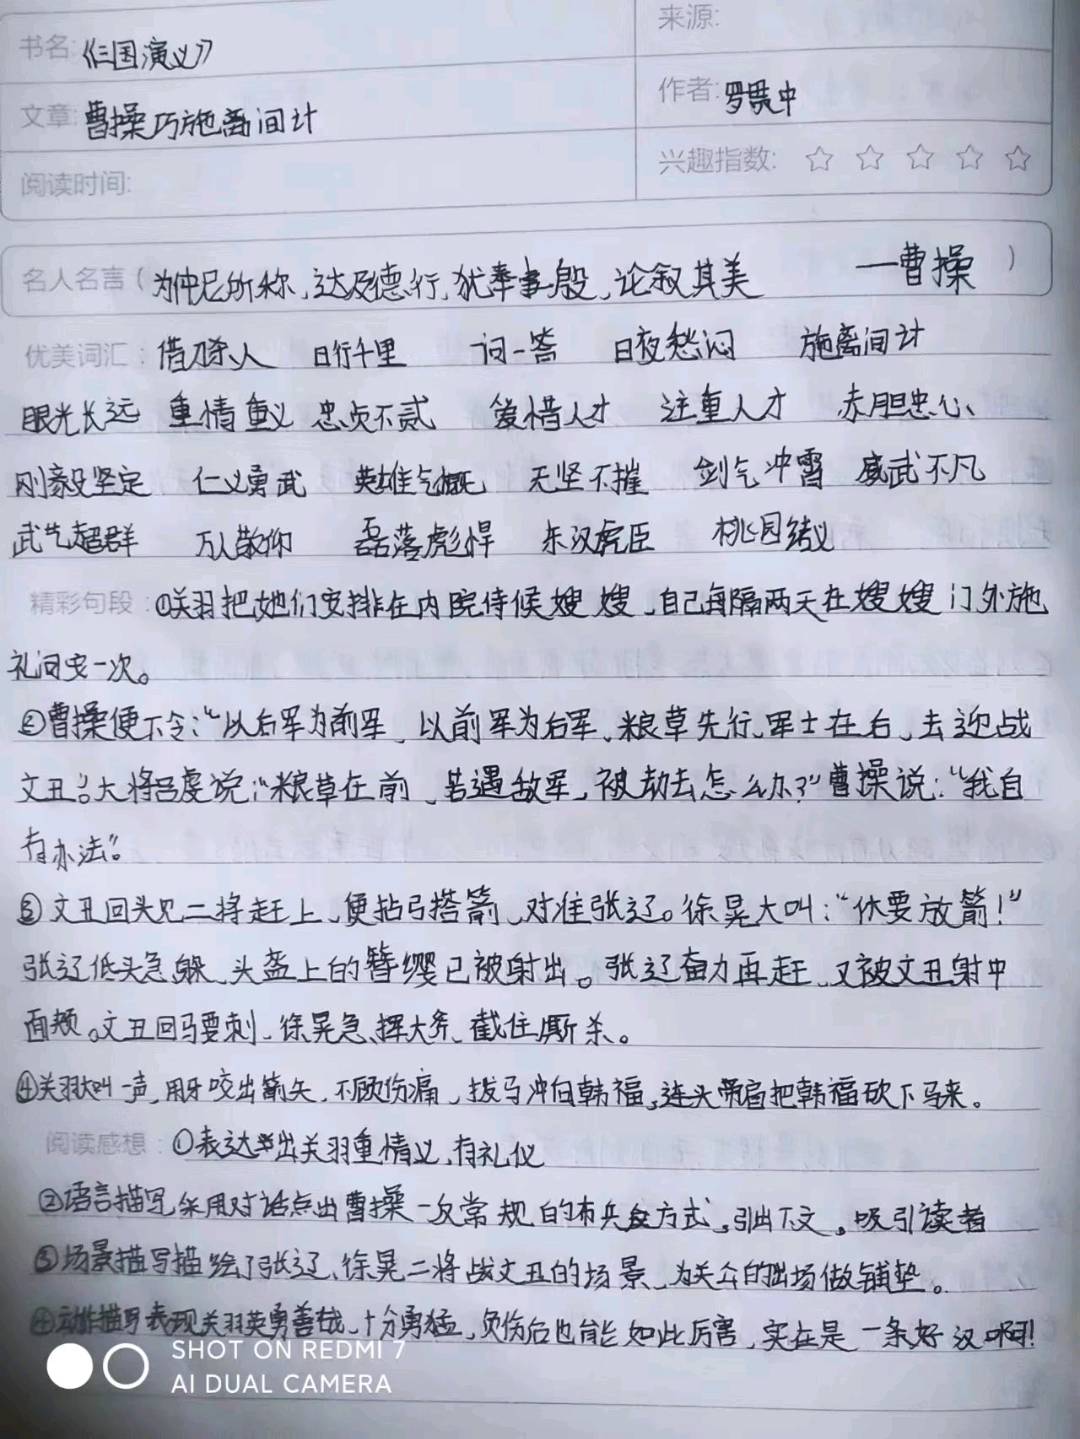 书名:《三国演义》
来源:
文章:曹操巧施离间计
作者:罗贯中
阅读时间:
兴趣指数:☆ ☆ ☆ ☆ ☆
名人名言(为仲尼所称,达及德行,犹奉事殷,论叙其美 ——曹操)
优美词汇:借刀除人 日行千里 问一答 日夜愁闷 施离间计
眼光长远 重情重义 忠贞不贰 爱惜人才 注重人才 赤胆忠心
刚毅坚定 仁义勇武 英雄气概 无坚不摧 剑气冲霄 威武不凡
武艺超群 万人敬仰 磊落彪悍 东汉虎臣 桃园结义
精彩句段:①关羽把她们安排在内院侍候嫂嫂,自己每隔两天在嫂嫂门外施
礼问安一次。
②曹操便下令:“以后军为前军,以前军为后军,粮草先行,军士在后,去迎战
文丑。”大将吕虔说:“粮草在前,若遇敌军,被劫去怎么办?”曹操说:“我自
有办法”。
③文丑回头见二将赶上,便拈弓搭箭,对准张辽。徐晃大叫:“休要放箭!”
张辽低头急躲,头盔上的簪缨已被射出。张辽奋力再赶,又被文丑射中
面颊。文丑回马要刺,徐晃急挥大斧,截住厮杀。
④关羽大叫一声,用牙咬出箭矢,不顾伤痛,拔马冲向韩福,连头带肩把韩福砍下马来。
阅读感想:①表达出关羽重情义,有礼仪
②语言描写采用对话点出曹操一反常规的布兵方式,引出下文,吸引读者
③场景描写描绘了张辽、徐晃二将战文丑的场景,为关公的出场做铺垫。
④动作描写表现关羽英勇善战,十分勇猛,负伤后也能如此厉害,实在是一条好汉啊!
SHOT ON REDMI 7
AI DUAL CAMERA